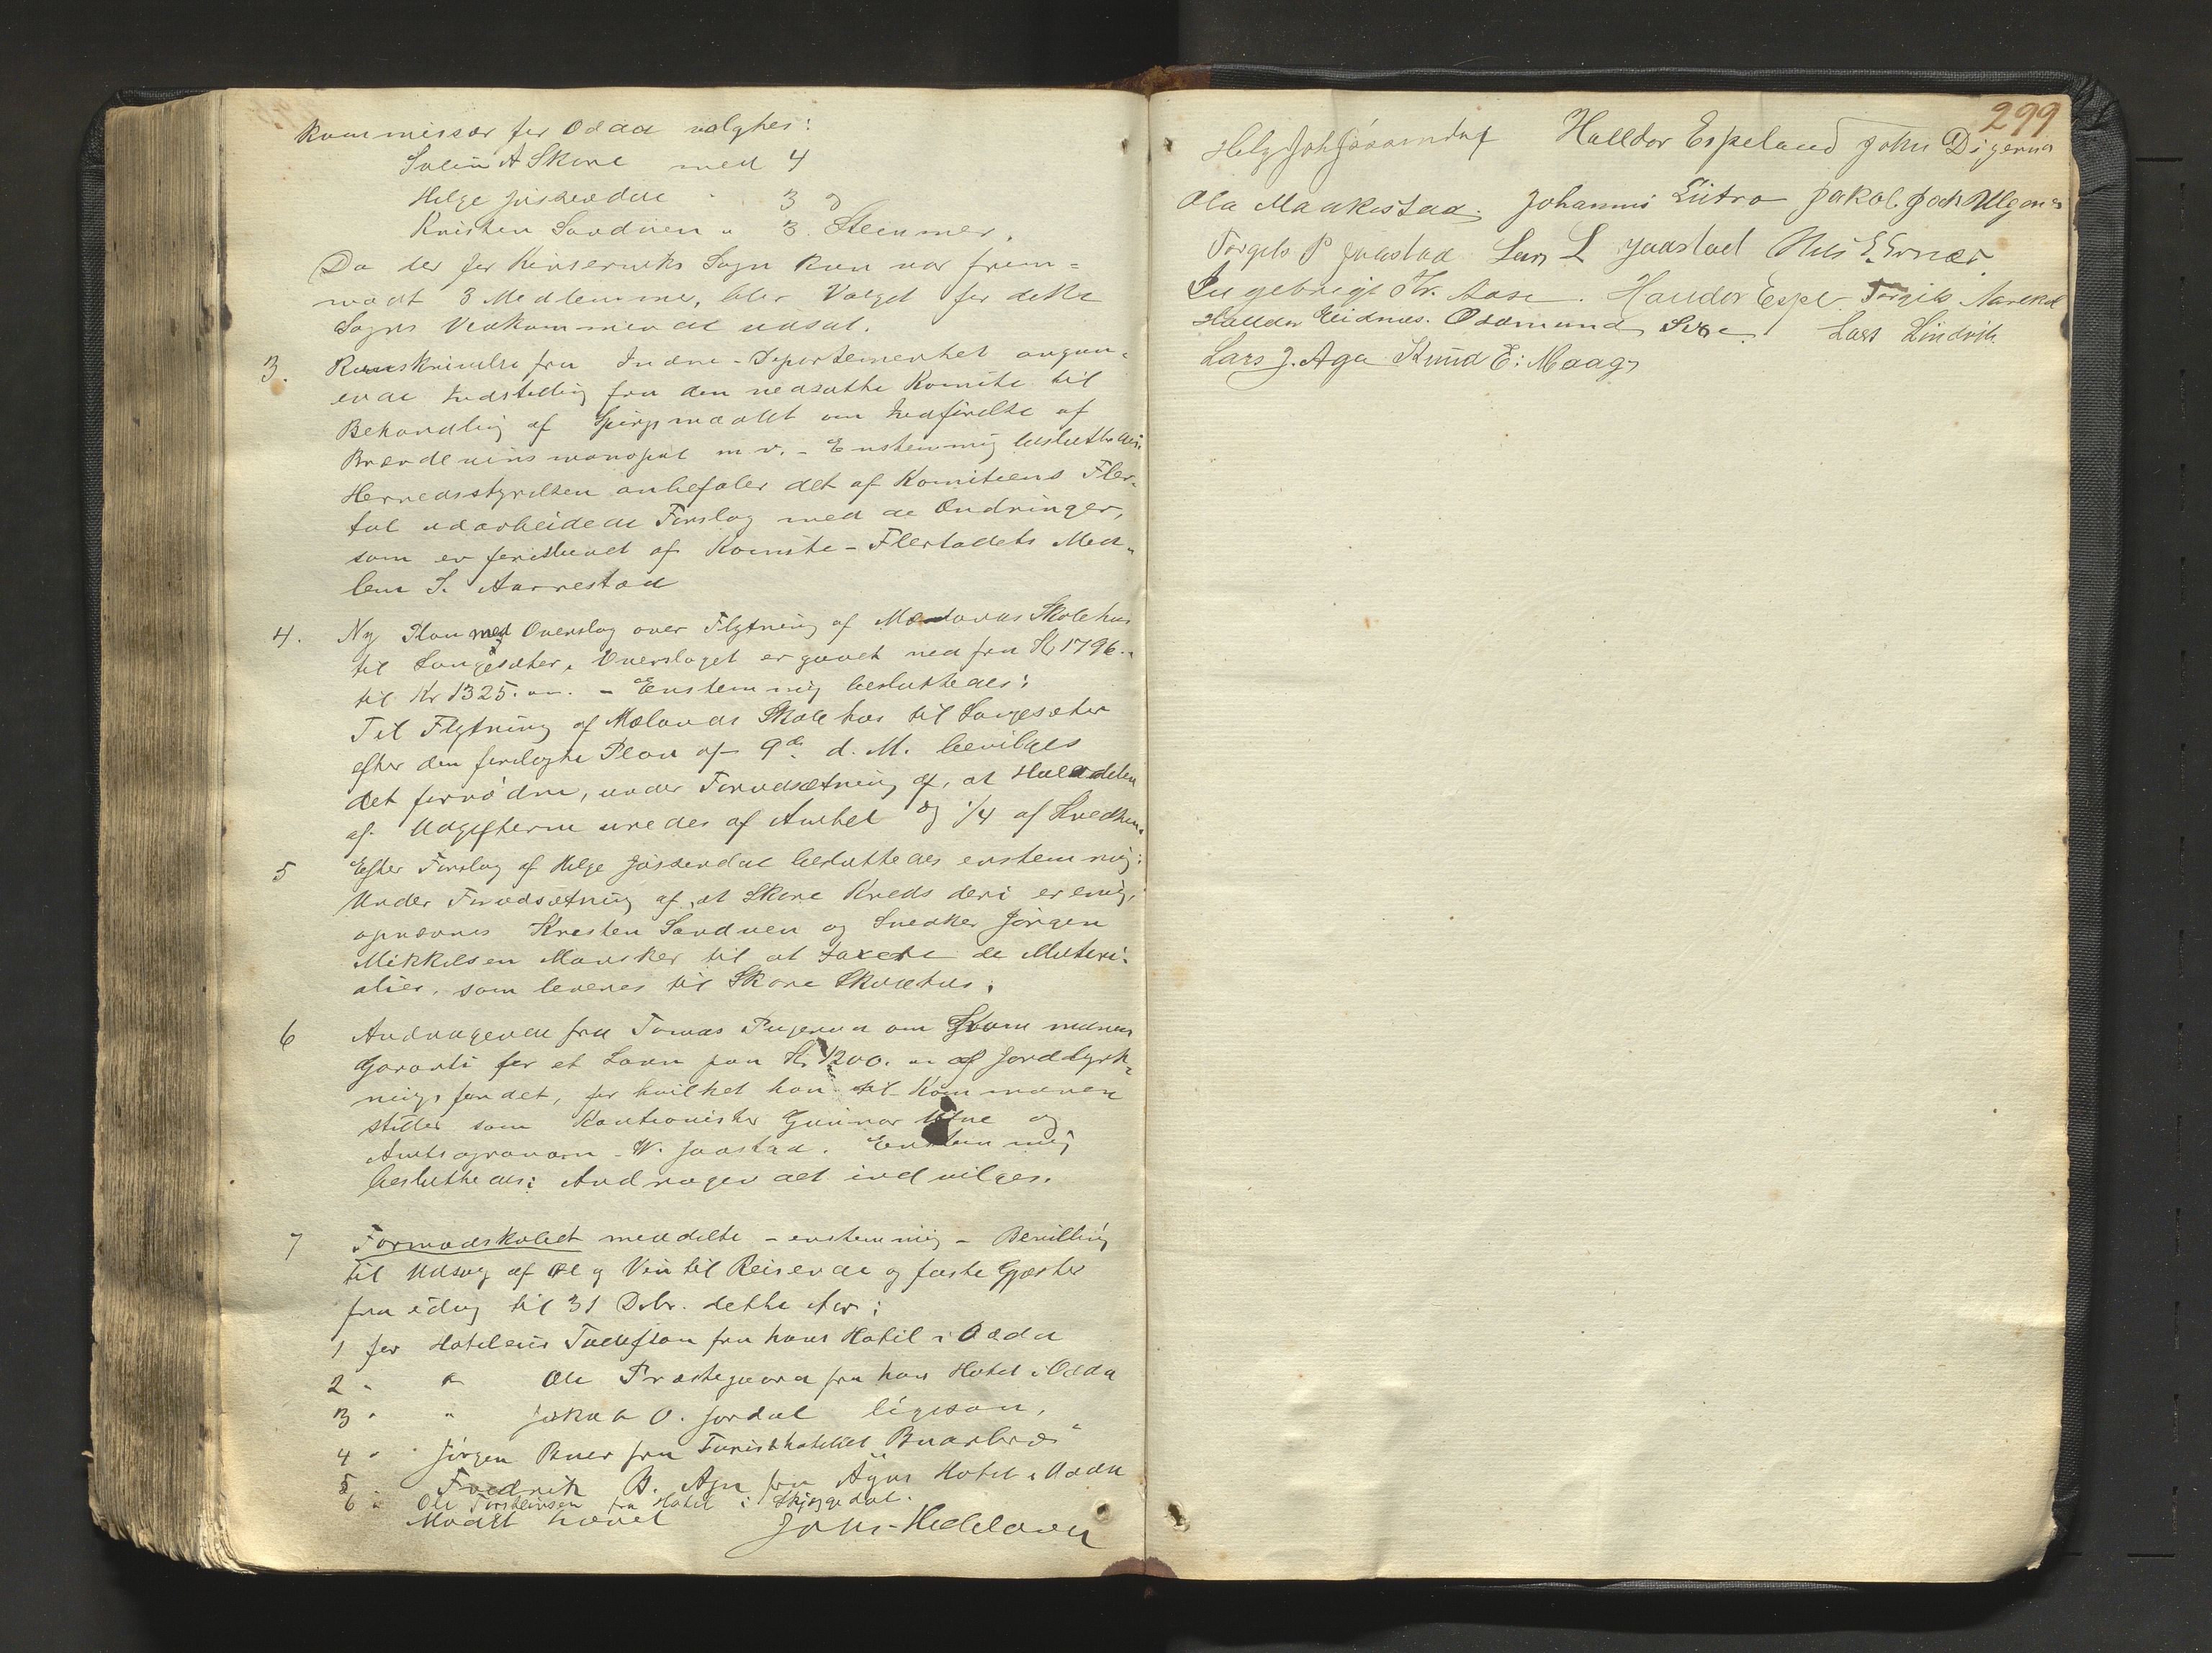 Kommissær for Odda valgtes:
Svein A Skare med 4
Helge Jøsendal " 3 og
Kristen Sandven " 3 Stemmer.
Da der for Kinserviks Sogn kun var frem-
mødt 3 Medlemmer, blev Valget for dette
Sogns Vedkommende udsat.
3. Rundskrivelse fra Indre-Departementet angaa-
ende Indstilling fra den nedsatte Komite til
Behandling af Spørgsmaalet om Indførelse af
Brændevinsmonopol m v. - Enstemmig besluttedes:
Herredsstyrelsen anbefaler det af Komiteens Fler-
tal udarbeidede Forslag med de Ændringer,
som er foreslaaet af Komite-Flertallets Med-
lem S. Aarrestad
4. Ny Plan med Overslag over Flytning af Mælands Skolehus
til Langesæter. Overslaget er gaaet ned fra Kr 1796.
til Kr 1325. - Enstemmig besluttedes:
Til Flytning af Mælands Skolehus til Langesæter
efter den forelagte Plan af 9de d. M. bevilges
det fornødne, under Forudsætning af, at Halvdelen
af Udgifterne uredes af Amtet og 1/4 af Kredsen.
5 Efter Forslag af Helge Jøsendal besluttedes enstemmig:
Under Forudsætning af, at Skare Kreds deri er enig,
opnævnes Kristen Sandven og Snedker Jørgen
Mikkelsen Mansker til at taxere de Materi-
alier, som leveres til Skare Skolehus.
6 Andragende fra Tomas om Kommunens
Garanti for et Laan paa Kr 1200. af Jorddyrk-
ningsfondet, for hvilket han til Kommunen
stiller som Kautionister Gunnar Utne og
Amtsagronom W. Jaastad. Enstemmig
besluttedes: Andragendet indvilges.
7 Formandskabet meddelte - enstemmig - Bevilling
til Udsalg af Øl og Vin til Reisende og faste Gjæster
fra idag til 31 Debr. dette Aar:
1 for Hoteleier Tollefson fra hans Hotel i Odda
2 " " Ole Præstegaard fra hans Hotel i Odda
3 " " Jakob O. Jordal ligesaa.
4 " Jørgen Buer fra Turisthotellet "Buarbræ"
5 " Fredrik B. Aga fra Agas Hotel i Odda
6 " Ole Torsteinsen fra Hotel i Skjæggedal.
Mødet hævet Johs. Helleland
299
Helge Joh Jøsendal Halldor Espeland John Digernes
Ola Maakestad. Johannes Lutro Jakob Joh Ulgenes
Torgils P Jaastad Lars L Jaastad Nils E. Ernes
Ingebrigt Th. Aase. Haldor Espe Torgils Aarekol
Halldor Eidnes. Odsmund Sexe. Lars Lindvik
Lars J. Aga Knud E. Maage